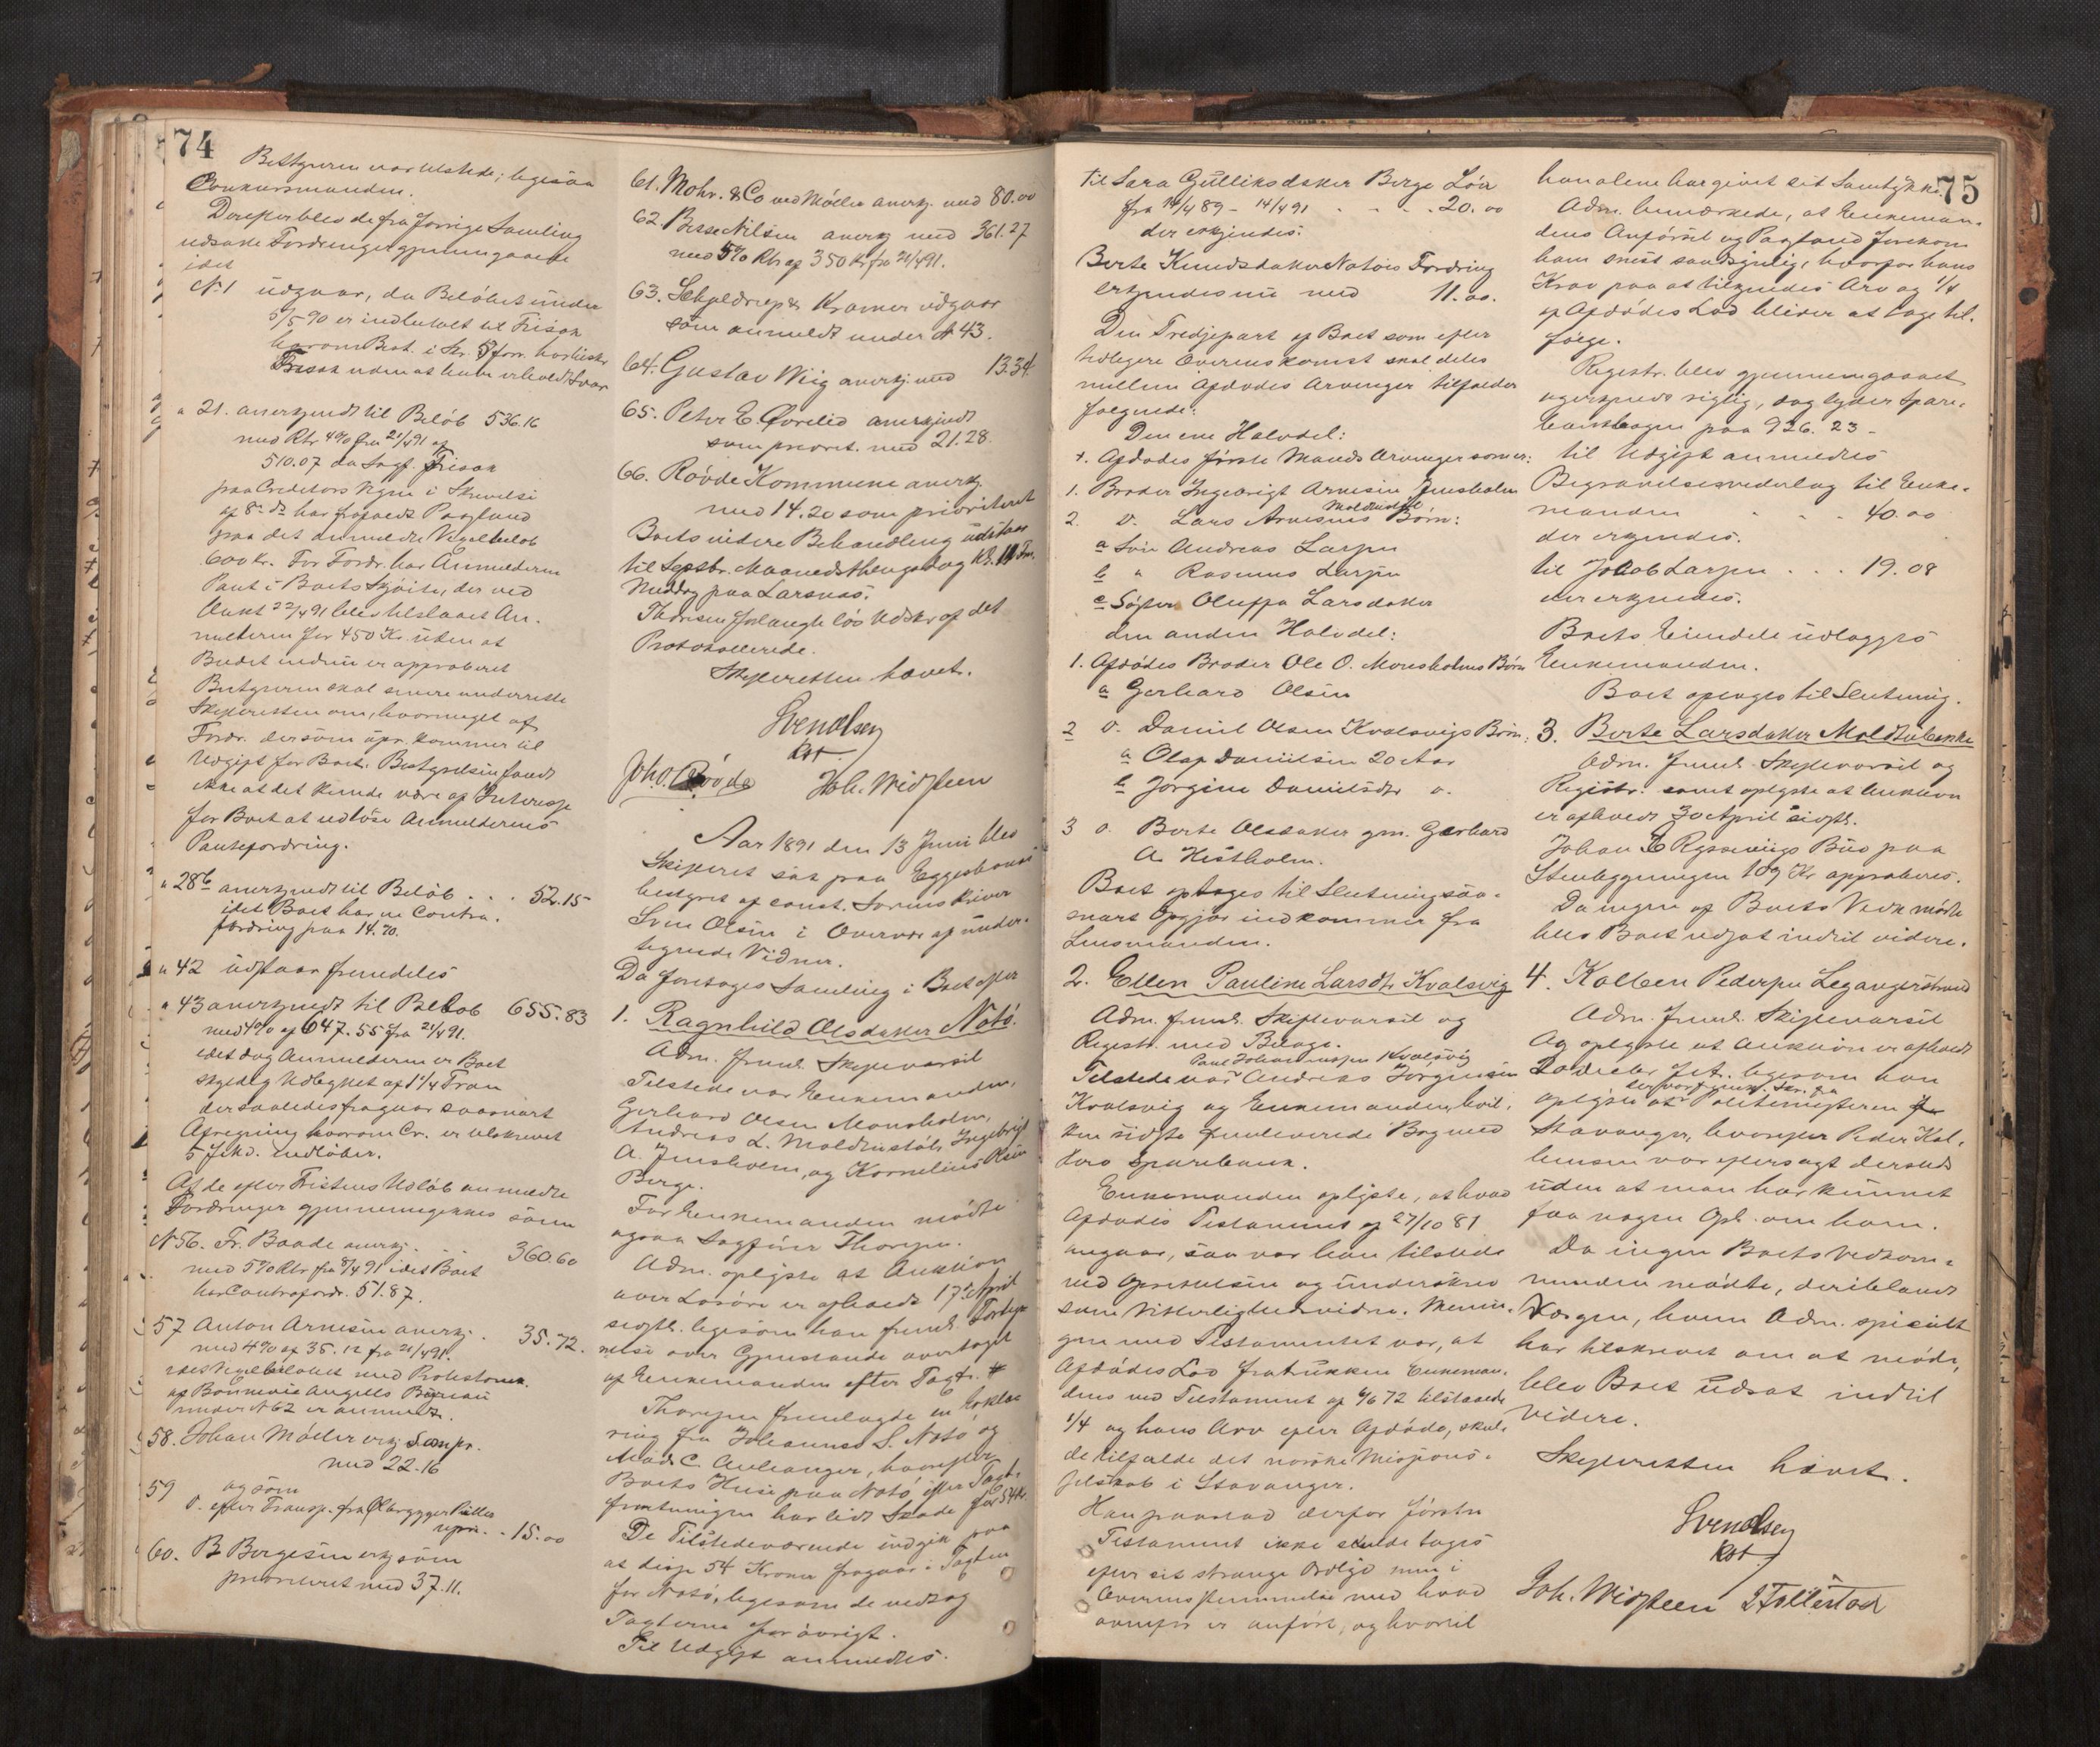 74
Bestyreren var tilstede; ligesaa
Konkursmanden.
Derefter blev de fra forrige Samling
udsatte Fordringer gjennemgaaede
idet
№ 1 udgaar, da Beløbet under
5/5 90 er indbetalt til Frisak
hvorom Best. i Skr. 5 forr.
Frisak uden at have erholdt Svar
" 21. anerkjendt til Beløb 536.16
med Rtr 4% fra 21/4 91 af
510.07 da Sagf. Frisak
paa Creditors Vegne i Skrivelse
af 8de ds har frafaldt Paastand
paa det anmeldte Vexelbeløb
600 kr. For Fordr. har Anmelderen
Pant i Boets Skjøite, der ved
Aukt 22/4 91 blev tilslaaet An-
melderen for 450 Kr. uden at
Budet endnu er approberet
Bestyreren skal senere underrette
Skifteretten om, hvormeget af
Fordr. dersom apr. kommer til
Udgift for Boet. Bestyrelsen fandt
ikke at det kunde være af Interesse
for Boet at udløse Anmelderens
Pantefordring.
" 28b anerkjendt til Beløb . . . 52.15
idet Boet har en Contra-
fordring paa 14.70.
" 42 udstaar fremdeles
" 43 anerkjendt til Beløb 655.83
med 4% af 647.55 fra 21/4 91.
idet dog Anmelderen er Boet
skyldig Udbyttet af 1 1/4 Tran
der saaledes fragaar saasnart
Afregning hvorom Cr. er tilskrevet
5 ds. indløber.
Af de efter Fristens Udløb anmeldte
Fordringer gjennemgikkes som
№ 56. Fr. Baade anerkj. . . 360.60
med 5% Rtr fra 8/4 91 idet Boet
har Contrafordr. 51.87.
57 Anton Arnesen anerkj. . 35.72.
med 4% af 35.12 fra 21/4 91.
idet Vexelbeløbet med Protestomk.
af Bonnevie Angells Bureau
under № 62 er anmeldt.
58. Johan Møller erkj. som pr.
med 22.16
59 ogsom
d. efter Transp. fra Ølbrygger
- 15.00
60. B Børgesen erkj som
prioriteret med 37.11.
61. Mohr. & Co ved Møller anerkj. med 80.00
62. Besse Nilsen anerkj med 361.27
med 5% Rtr af 350 Kr fra 21/4 91.
63. Schjeldrup & Kramer udgaar
som anmeldt under № 43.
64. Gustav Wiig anerkj. med 13.34
65. Peter E. Ørvelid anerkjendt
som priorit. med 21.28.
66. Røvde Kommune anerkj.
med 14.20 som prioriteret
Boets videre Behandling udstaar
til Septbr. Maanedsthingsdag Kl. 11 Fm.
Møddag paa Larsnæs.
Thoresen forlangte løs Udskr af det
Protokollerede.
Skifteretten hævet.
Svendsen
Kst.
Joh. O. Røvde Joh. Widsteen
Aar 1891 den 13 Juni blev
Skifteret sat paa Eggesbønæs
bestyret af const. Sorenskriver
Sven Olsen i Overvær af under-
tegnede Vidner.
Da foretoges Samling i Boet efter
1. Ragnhild Olsdatter Notø.
Adm. freml. Skiftevarsel
Tilstede var Enkemanden,
Gerhard Olsen Moneholm,
Andreas L. Moldtustøl, Ingebrigt
A. Jensholm, og Kornelius Olsen
Berge.
For Enkemanden mødte
ogsaa Sagfører Thoresen.
Adm. oplyste at Auktion
over Løsøre er afholdt 17de April
sidstl. ligesom han freml. Forteg-
nelse over Gjenstande overtaget
af Enkemanden efter Taxt.
Thoresen fremlagde en Erklæ-
ring fra Johannes S. Notø og
Mads C. Aulanger, hvorefter
Boets Huse paa Notø efter Taxt-
forretningen har lidt Skade for 54 kr.
De Tilstedeværende indgik paa
at disse 54 Kroner fragaar i Taxten
for Notø, ligesom de vedtog
Taxterne forøvrigt.
Til Udgift anmeldtes.
75
til Sara Gulliksdatter Berge Løn
fra 14/4 89 - 14/4 91 . . . . 20.00
der erkjendes.
Berte Knudsdatter Notøs Fordring
erkjendes nu med 11.00.
Den Tredjepart af Boet som efter
tidligere Overenskomst skal deles
mellem Afdødes Arvinger tilfalder
følgende:
Den ene Halvdel:
Afdødes første Mands Arvinger som er:
1. Broder Ingebrigt Arnesen Jensholm
2. d. Lars Arnesens Moldtustøl Børn:
a Søn Andreas Larsen
b " Rasmus Larsen
c Søster Oluffa Larsdatter
den anden Halvdel:
1. Afdødes Broder Ole O. Moneholms Børn
a Gerhard Olsen
2 d. Daniel Olsen Kvalsvigs Børn:
a Olaf Danielsen 20 Aar
b Jørgine Danielsdtr d.
3 d. Berte Olsdatter gm. Gerhard
A. Hestholm.
Boet optages til Slutning saa-
snart Opgjør indkommer fra
Lensmanden.
2. Ellen Pauline Larsdtr Kvalsvig
Adm. freml. Skiftevarsel og
Registr. med Bilage.
Tilstede var Paul Johannessen Kvalsvig Andreas Jørgensen
Kvalsvig og Enkemanden, hvil-
ken sidste fremleverede Bog med
Herø Sparebank.
Enkemanden oplyste, at hvad
Afdødes Testament af 27/10 81
angaar, saa var han tilstede
ved Oprettelsen og underskrev
som Vitterlighedsvidne. Menin-
gen med Testamentet var, at
Afdødes Lod fratrukken Enkeman-
dens ved Testament af 6/6 72 tilstaaede
1/4 og hans Arv efter Afdøde, skul-
de tilfalde det norske Missions-
selskab i Stavanger.
Han paastod derfor første
Testament ikke skulde tages
efter sit strænge Ordlyd men i
Overensstemmelse med hvad
ovenfor er anført, og hvortil
han alene har givet sit Samtykke.
Adm. bemærkede, at Enkeman-
dens Anførsel og Paastand forekom
ham mest sandsynlig, hvorfor hans
Krav paa at tilkjendes Arv og 1/4
af Afdødes Lod bliver at tage til-
følge.
Registr. blev gjennemgaaet
og erkjendt rigtig, dog lyder Spare-
bankbogen paa 926.23 -
til Udgift anmeldtes
Begravelsesvederlag til Enke-
manden . . . 40.00
der erkjendes.
til Jakob Larsen . . . 19.08
der erkjendes.
Boets Eiendele udlægges
Enkemanden.
Boet optages til Slutning.
3. Berte Larsdatter Moldtubakke
Adm. freml. Skiftevarsel og
Registr. samt oplyste at Auktion
er afholdt 30 April sidstl.
Johan E Rysseviigs Bud paa
Stenbygningen 109 Kr approberes.
Da ingen af Boets Vedk mødte
blev Boet udsat indtil videre.
4. Kolben Pedersen Legangerstrand
Adm. freml. Skiftevarsel
Og oplyste at Auktion er afholdt
ligesom han
oplyste at der var Skr. fra Politimesteren
Stavanger, hvorefter Peder Kol-
bensen var eftersøgt dersteds
uden at man har kunnet
faa nogen Opl. om ham.
Da ingen Boets Vedkom-
menden mødte, deriblandt
Værgen, hvem Adm. specielt
har tilskrevet om at møde,
blev Boet udsat indtil
videre.
Skifteretten hævet.
Svendsen
Kst.
Joh. Widsteen I Follestad